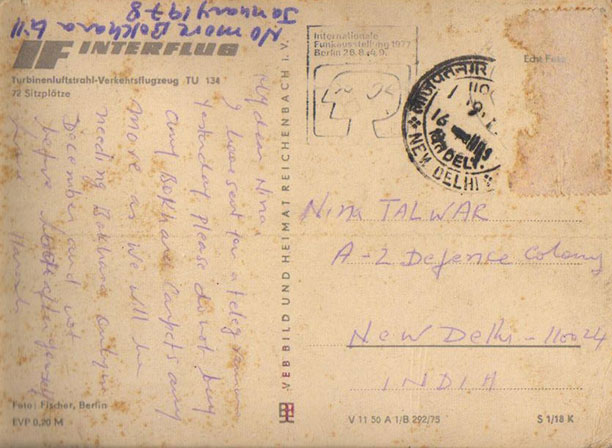 No more Bokhara till
January 1978
IF INTERFLUG
Turbinenluftstrahl-Verkehrsflugzeug TU 134
72 Sitzplätze
My dear Nina,
I have sent you a telegramme
Yesterday please do not buy
any Bokhara Carpets any
more as we will be
needing Bokhara only in
December and not
before. Look after yourself
Love
Foto: Fischer, Berlin
EVP 0,20 M
VEB BILD UND HEIMAT REICHENBACH I. V.
Internationale
Funkausstellung 1977
Berlin 26.8.-4.9.
Echt Foto
16
NEW DELHI
Nina TALWAR
A-2 Defence Colony
New Delhi-110024
INDIA
V 11 50 A 1/B 292/75
S 1/18 K